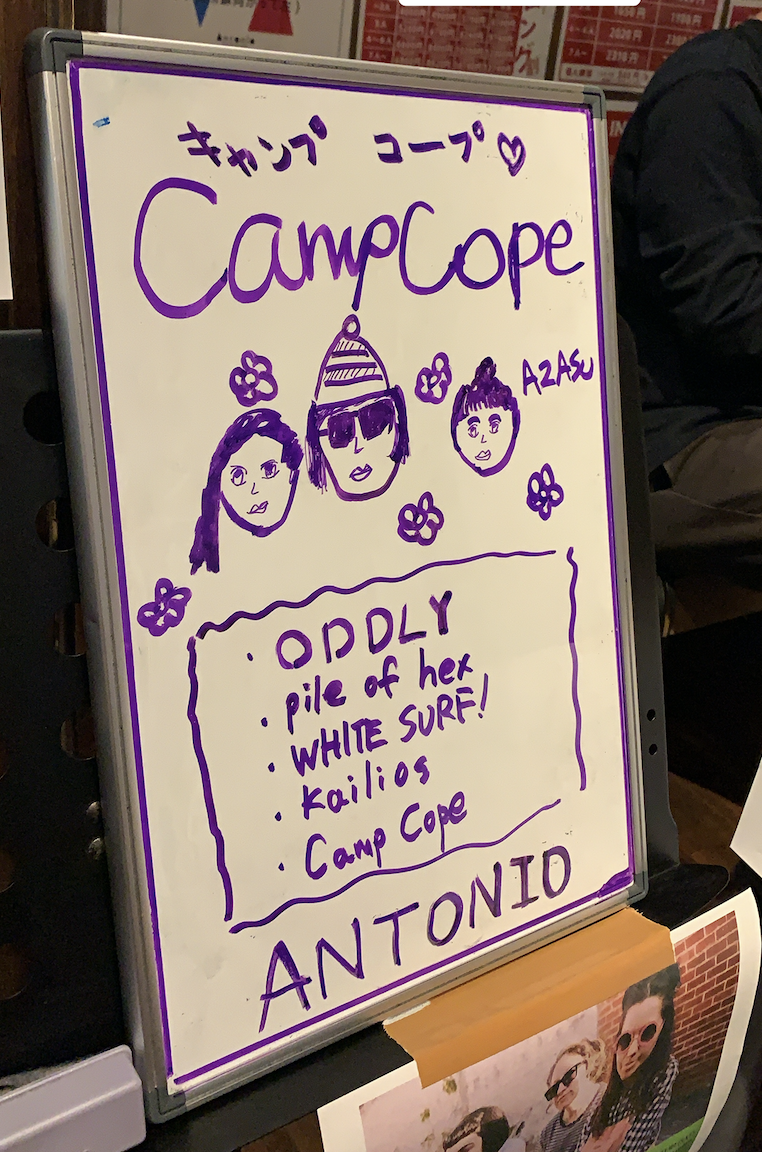 キャンプ コープ♡
Camp Cope
AZASU
・ODDLY
・pile of hex
・WHITE SURF!
・Kailios
・Camp Cope
ANTONIO